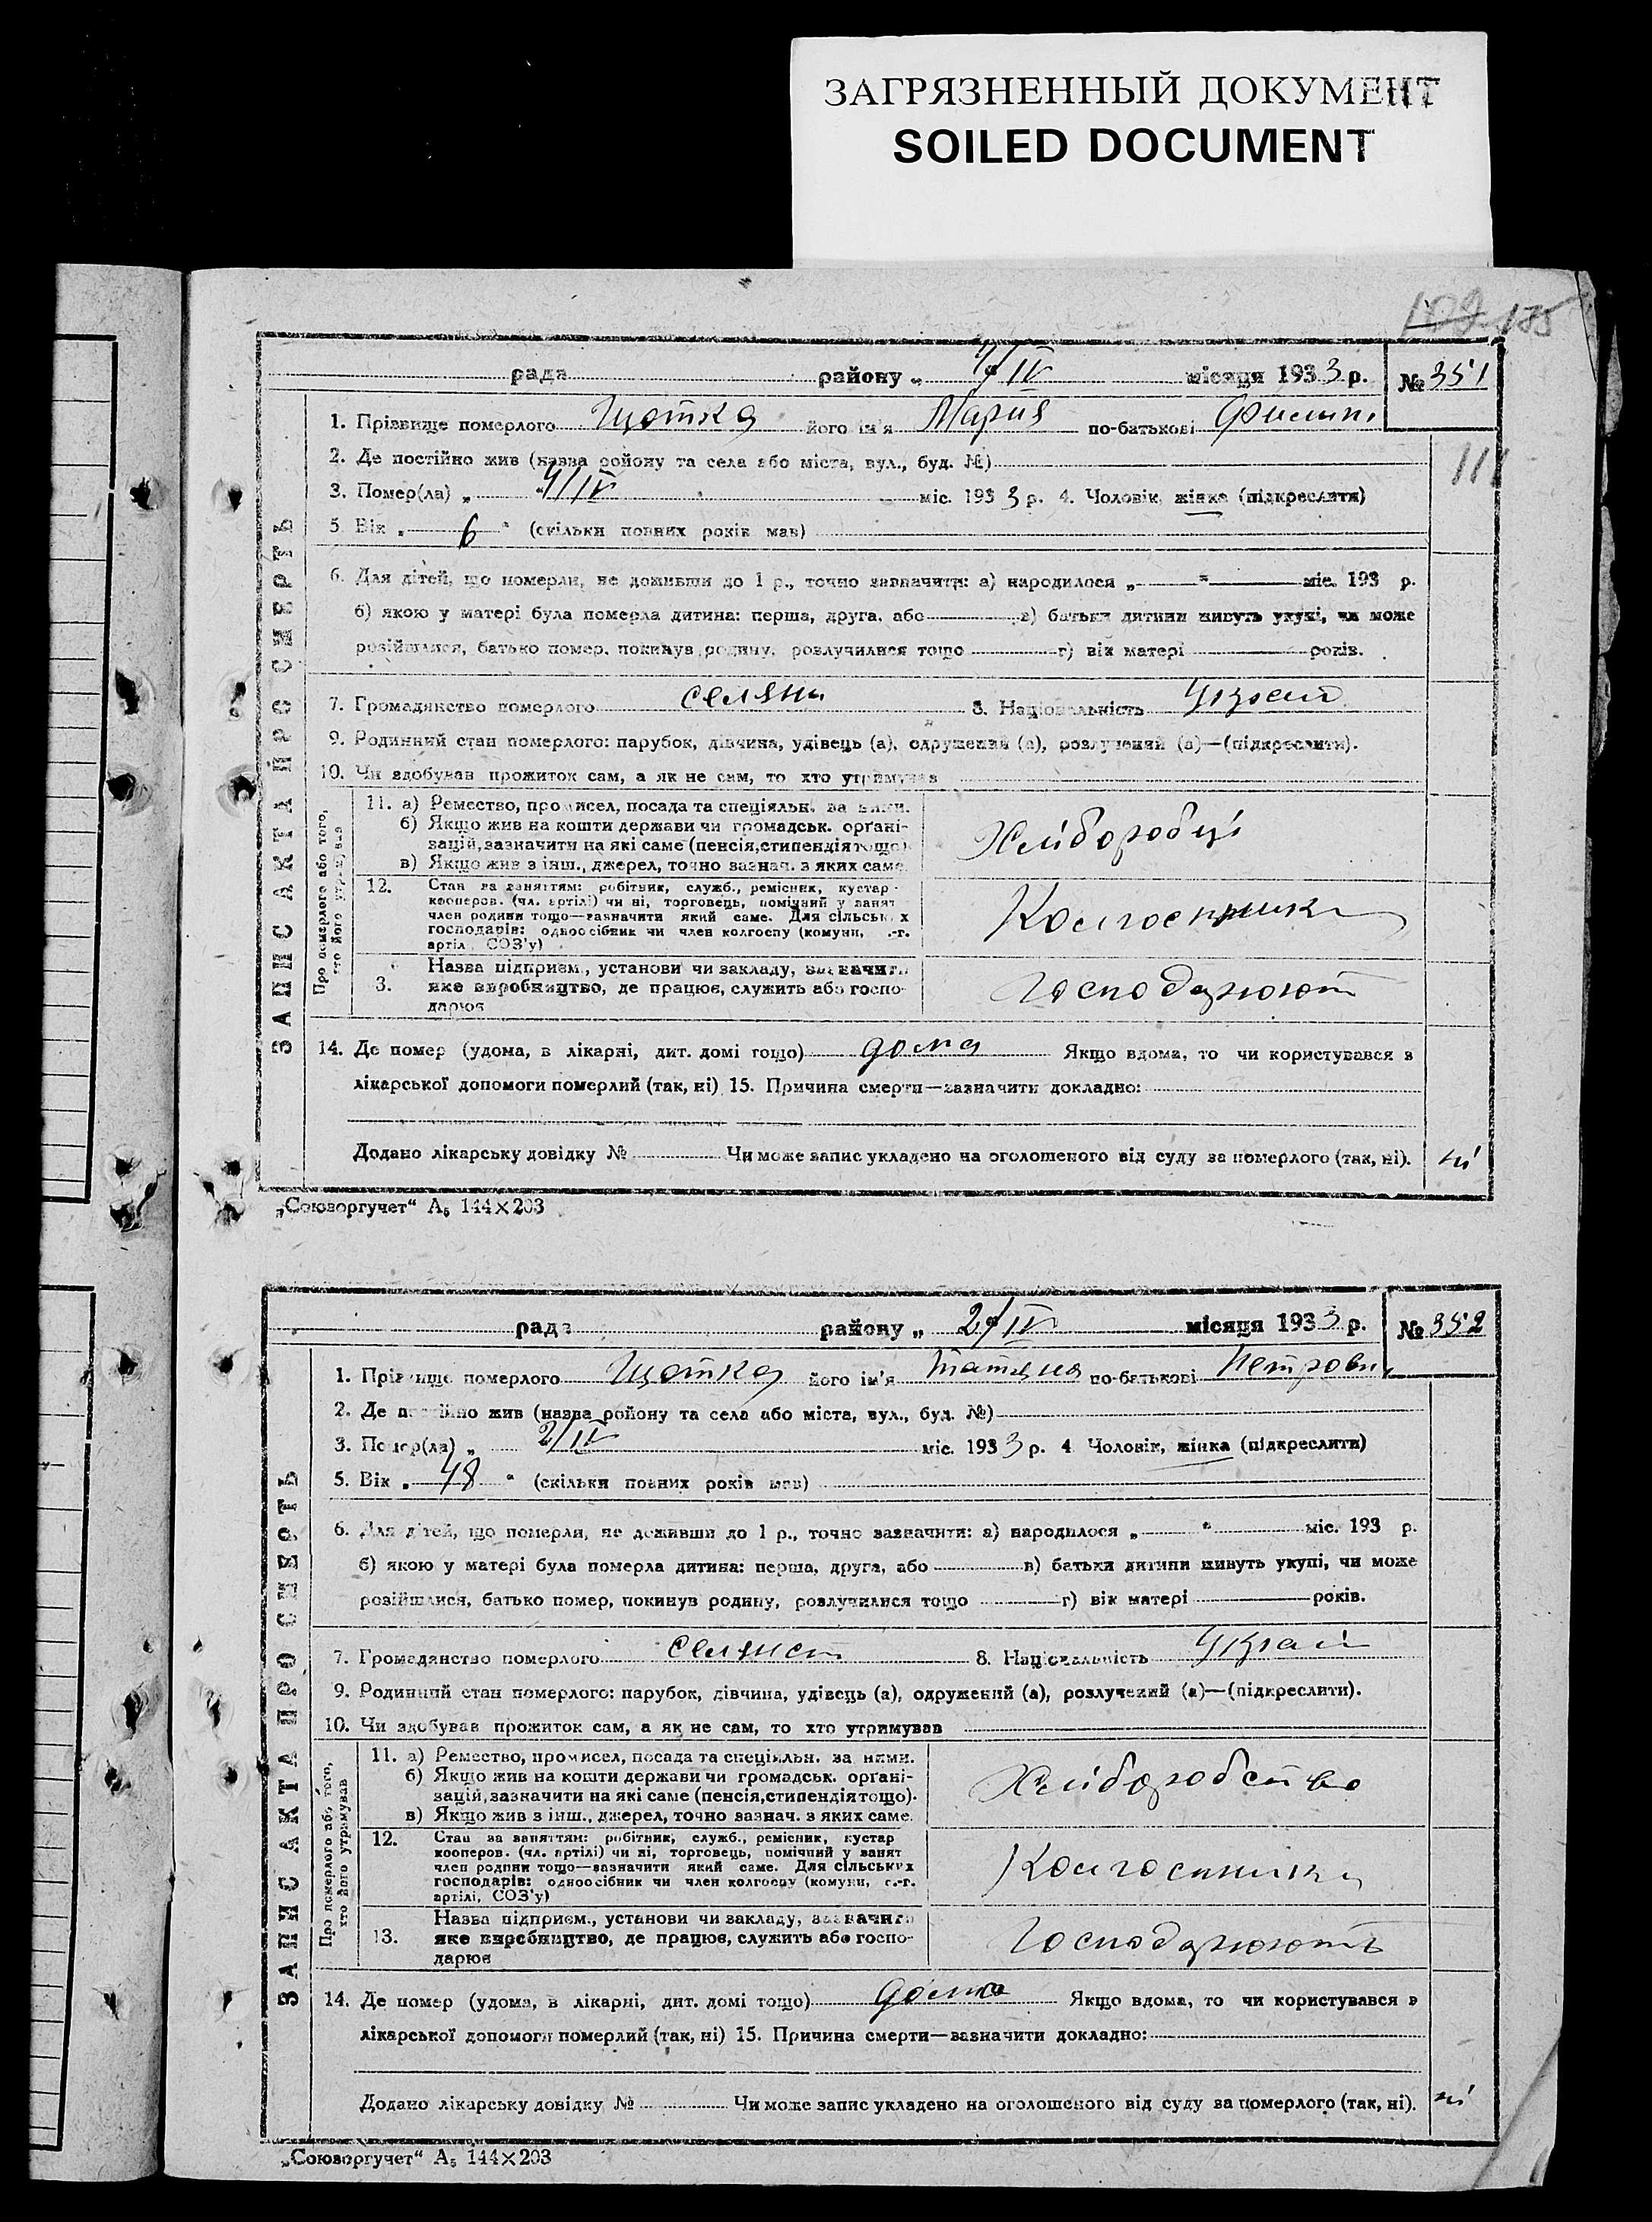 ЗАГРЯЗНЕННЫЙ ДОКУМЕНТ
SOILED DOCUMENT
109 135
рада району „ 4/IV місяця 1933 р. № 351
1. Прізвище померлого Щотка його ім'я Мария по-батькові Филип.
111
2. Де постійно жив (назва ройону та села або міста, вул., буд. №)
3. Помер(ла) „ 4/IV міс. 1933 р. 4. Чоловік, жінка (підкреслити)
5. Вік „ 6 “ (скільки повних років мав)
6. Для дітей, що померли, не доживши до 1 р., точно зазначити: а) народилося „ “ міс. 193 р.
б) якою у матері була померла дитина: перша, друга, або в) батьки дитини живуть укупі, чи може
розійшлися, батько помер, покинув родину, розлучилися тощо г) вік матері років.
7. Громадянство померлого селяни 8. Національність Украй
9. Родинний стан померлого: парубок, дівчина, удівець (а), одружений (а), розлучений (а)—(підкреслити).
10. Чи здобував прожиток сам, а як не сам, то хто утримував
ЗАПИС АКТА ПРО СМЕРТЬ
Про померлого або того, хто його утримував
11. а) Ремество, промисел, посада та спеціяльн. за ними.
б) Якщо жив на кошти держави чи громадськ. органі-
зацій, зазначити на які саме (пенсія, стипендія тощо).
в) Якщо жив з інш., джерел, точно зазнач. з яких саме.
Хліборобці
12. Стан за заняттям: робітник, служб., ремісник, кустар
кооперов. (чл. артілі) чи ні, торговець, помічний у занят
член родини тощо—зазначити який саме. Для сільських
господарів: одноосібник чи член колгоспу (комуни, с.-г.
артілі, СОЗ'у)
Колгоспники
3. Назва підприєм., установи чи закладу, зазначити
яке виробництво, де працює, служить або госпо-
дарює
Господарюють
14. Де помер (удома, в лікарні, дит. домі тощо) дома Якщо вдома, то чи користувався з
лікарської допомоги померлий (так, ні) 15. Причина смерти—зазначити докладно:
Додано лікарську довідку № Чи може запис укладено на оголошеного від суду за померлого (так, ні). ні
„Союзоргучет“ А₅ 144×203
рада району „ 2/IV місяця 1933 р. № 352
1. Прізвище померлого Щотка його ім'я Татяна по-батькові Петровн.
2. Де постійно жив (назва ройону та села або міста, вул., буд. №)
3. Помер(ла) „ 2/IV міс. 1933 р. 4 Чоловік, жінка (підкреслити)
5. Вік „ 48 “ (скільки повних років мав)
6. Для дітей, що померли, не доживши до 1 р., точно зазначити: а) народилося „ “ міс. 193 р.
б) якою у матері була померла дитина: перша, друга, або в) батьки дитини живуть укупі, чи може
розійшлися, батько помер, покинув родину, розлучилися тощо г) вік матері років.
7. Громадянство померлого селянст 8. Національність Украй
9. Родинний стан померлого: парубок, дівчина, удівець (а), одружений (а), розлучений (а)—(підкреслити).
10. Чи здобував прожиток сам, а як не сам, то хто утримував
ЗАПИС АКТА ПРО СМЕРТЬ
Про померлого або того, хто його утримував
11. а) Ремество, промисел, посада та спеціяльн. за ними.
б) Якщо жив на кошти держави чи громадськ. органі-
зацій, зазначити на які саме (пенсія, стипендія тощо).
в) Якщо жив з інш., джерел, точно зазнач. з яких саме.
Хліборобство
12. Стан за заняттям: робітник, служб., ремісник, кустар
кооперов. (чл. артілі) чи ні, торговець, помічний у занят
член родини тощо—зазначити який саме. Для сільських
господарів: одноосібник чи член колгоспу (комуни, с.-г.
артілі, СОЗ'у)
Колгоспники
13. Назва підприєм., установи чи закладу, зазначити
яке виробництво, де працює, служить або госпо-
дарює
Господарюють
14. Де помер (удома, в лікарні, дит. домі тощо) дома Якщо вдома, то чи користувався з
лікарської допомоги померлий (так, ні) 15. Причина смерти—зазначити докладно:
Додано лікарську довідку № Чи може запис укладено на оголошеного від суду за померлого (так, ні). ні
„Союзоргучет“ А₅ 144×203